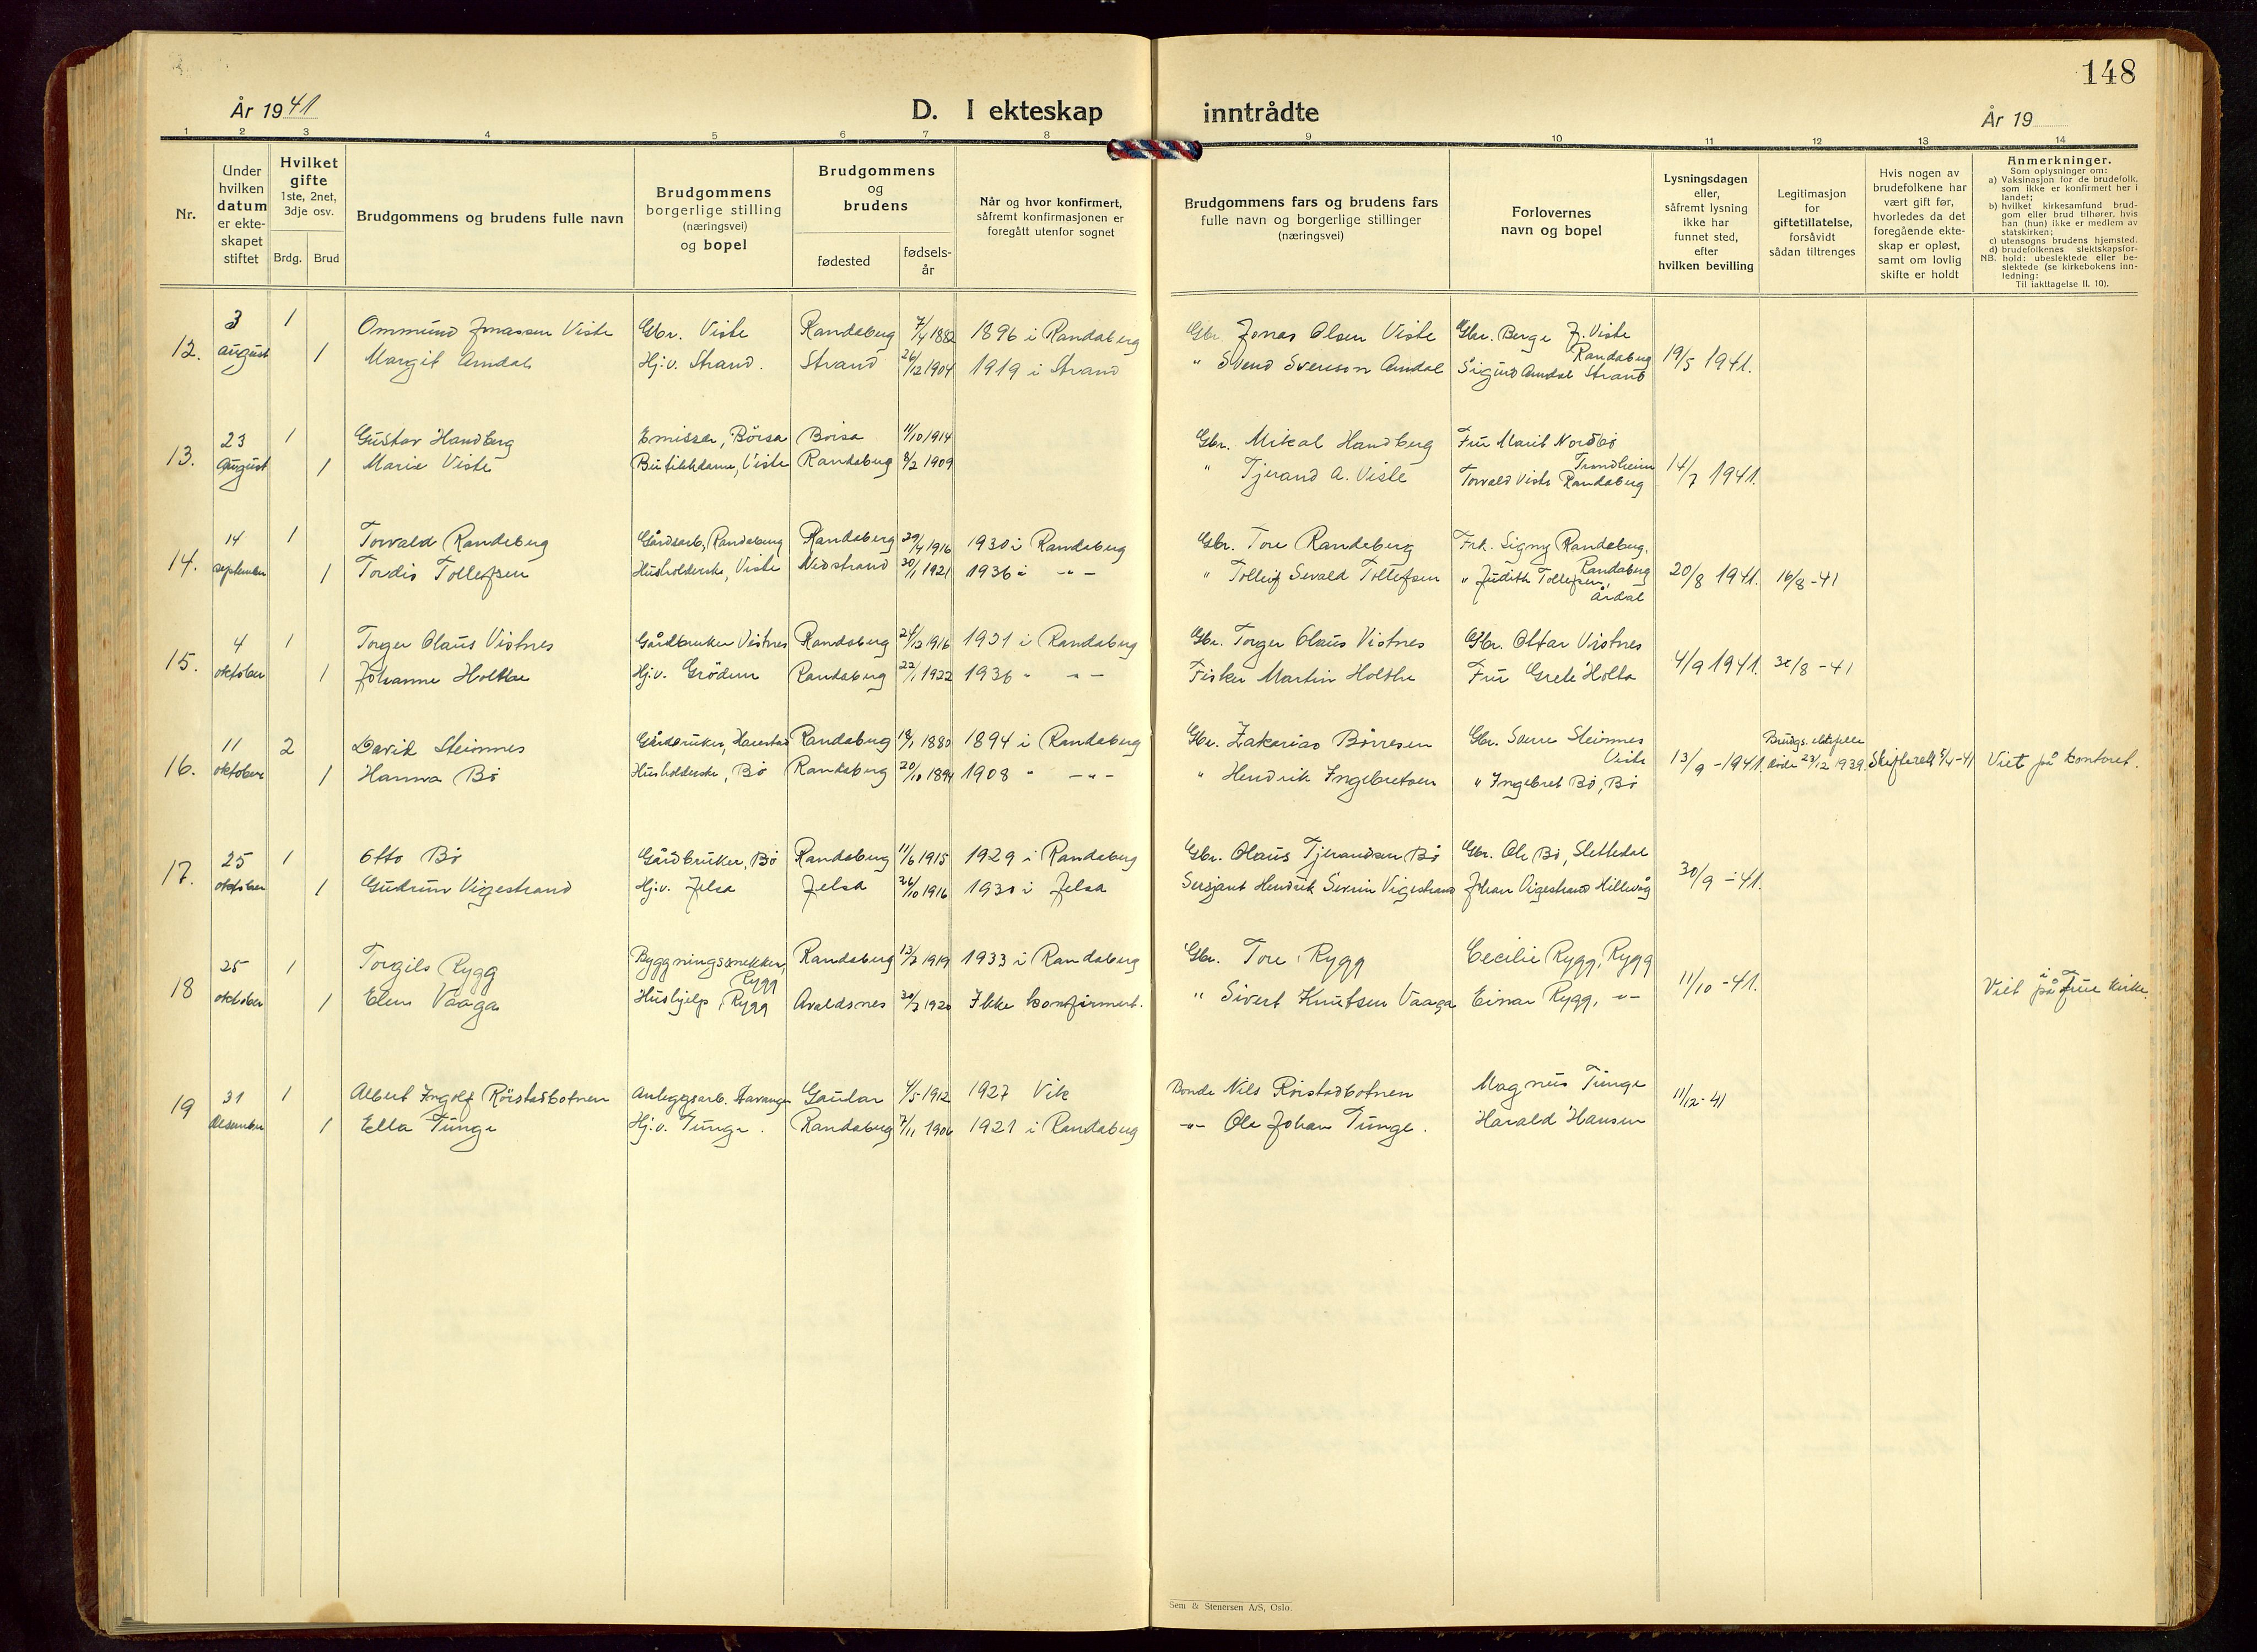 148
År 1941
D. I ekteskap inntrådte
År 19
1 2 3 4 5 6 7 8 9 10 11 12 13 14
Nr.
Under hvilken datum er ekte-skapet stiftet
Hvilket gifte
1ste, 2net, 3dje osv.
Brdg. Brud
Brudgommens og brudens fulle navn
Brudgommens borgerlige stilling (næringsvei) og bopel
Brudgommens og brudens
fødested
fødsels-år
Når og hvor konfirmert, såfremt konfirmasjonen er foregått utenfor sognet
Brudgommens fars og brudens fars fulle navn og borgerlige stillinger (næringsvei)
Forlovernes navn og bopel
Lysningsdagen eller, såfremt lysning ikke har funnet sted, efter hvilken bevilling
Legitimasjon for giftetillatelse, forsåvidt sådan tiltrenges
Hvis nogen av brudefolkene har vært gift før, hvorledes da det foregående ekte-skap er opløst, samt om lovlig skifte er holdt
Anmerkninger.
Som oplysninger om:
a) Vaksinasjon for de brudefolk, som ikke er konfirmert her i landet;
b) hvilket kirkesamfund brud-gom eller brud tilhører, hvis han (hun) ikke er medlem av statskirken;
c) utensogns brudens hjemsted.
d) brudefolkenes slektskapsfor-hold: ubeslektede eller be-slektede (se kirkebokens inn-ledning:
NB.
Til iakttagelse II. 10).
12. 3 august 1 Ommund Jonassen Viste Gbr. Viste Randaberg 7/4 1882 1896 i Randaberg Gbr. Jonas Olsen Viste Gbr. Berge J. Viste Randaberg 19/5 1941.
1 Margit Amdal Hj.v. Strand. Strand 26/12 1904 1919 i Strand " Svend Svenson Amdal Sigurd Amdal Strand
13. 23 August 1 Gustav Handberg Emissær, Börsa Börsa 11/10 1914 Gbr. Mikal Handberg Fru Marit Nordbö Trondheim 14/7 1941.
1 Marie Viste Butikkdame, Viste Randaberg 8/2 1909 " Tjerand A. Viste Torvald Viste Randaberg
14. 14 september 1 Torvald Randeberg Gårdsarb, Randaberg Randaberg 29/4 1916 1930 i Randaberg Gbr. Tore Randeberg Frk. Signy Randeberg, Randaberg 20/8 1941. 16/8-41
1 Tordis Tollefsen Husholderske, Viste Nedstrand 30/1 1921 1936 i -"- " Tolleif Sevald Tollefsen " Judith Tollefsen, Årdal
15. 4 oktober 1 Torger Olaus Vistnes Gårdbruker Vistnes Randaberg 24/12 1916 1931 i Randaberg Gbr. Torger Olaus Vistnes Gbr. Ottar Vistnes 4/9 1941. 30/8-41
1 Johanne Holthe Hj.v. Grödem Randaberg 22/1 1922 1936 " -"- Fisker Martin Holthe Fru Grete Holta
16. 11 oktober 2 David Steinnes Gårdbruker, Harestad Randaberg 18/1 1880 1894 i Randaberg Gbr. Zakarias Börresen Gbr. Sverre Steinnes Viste 13/9-1941. Brudgs. ektefelle døde 23/12 1939. Skifterett 5/4-41 Viet på kontoret.
1 Hanna Bö Husholderske, Bö Randaberg 20/10 1894 1908 " -"- " Hendrik Ingebretsen " Ingebret Bö, Bö
17. 25 oktober 1 Otto Bö Gårdbruker, Bö Randaberg 11/6 1915 1929 i Randaberg Gbr. Olaus Tjerandsen Bö Gbr. Ole Bö, Slettedal 30/9-41.
1 Gudrun Vigestrand Hj.v. Jelsa Jelsa 26/10 1916 1930 i Jelsa Sersjant Hendrik Severin Vigestrand Johan Vigestrand Hillevåg
18 25 oktober 1 Torgils Rygg Byggningssnekker, Rygg Randaberg 13/2 1919 1933 i Randaberg Gbr. Tore Rygg Cecilie Rygg, Rygg 11/10-41. Viet i Frue kirke.
1 Elen Vaaga Hushjelp, Rygg Avaldsnes 30/7 1920 Ikke konfirmert. " Sivert Knutsen Vaaga Einar Rygg, -"-
19 31 desember 1 Albert Ingolf Röistadbotnen Anleggsarb. Stavanger Gaular 4/5-1912 1927 Vik Bonde Nils Röistadbotnen Magnus Tunge 11/12-41
1 Ella Tunge Hj.v. Tunge. Randaberg 7/11 1906 1921 i Randaberg -"- Ole Johan Tunge. Harald Hansen
Sem & Stenersen A/S, Oslo.